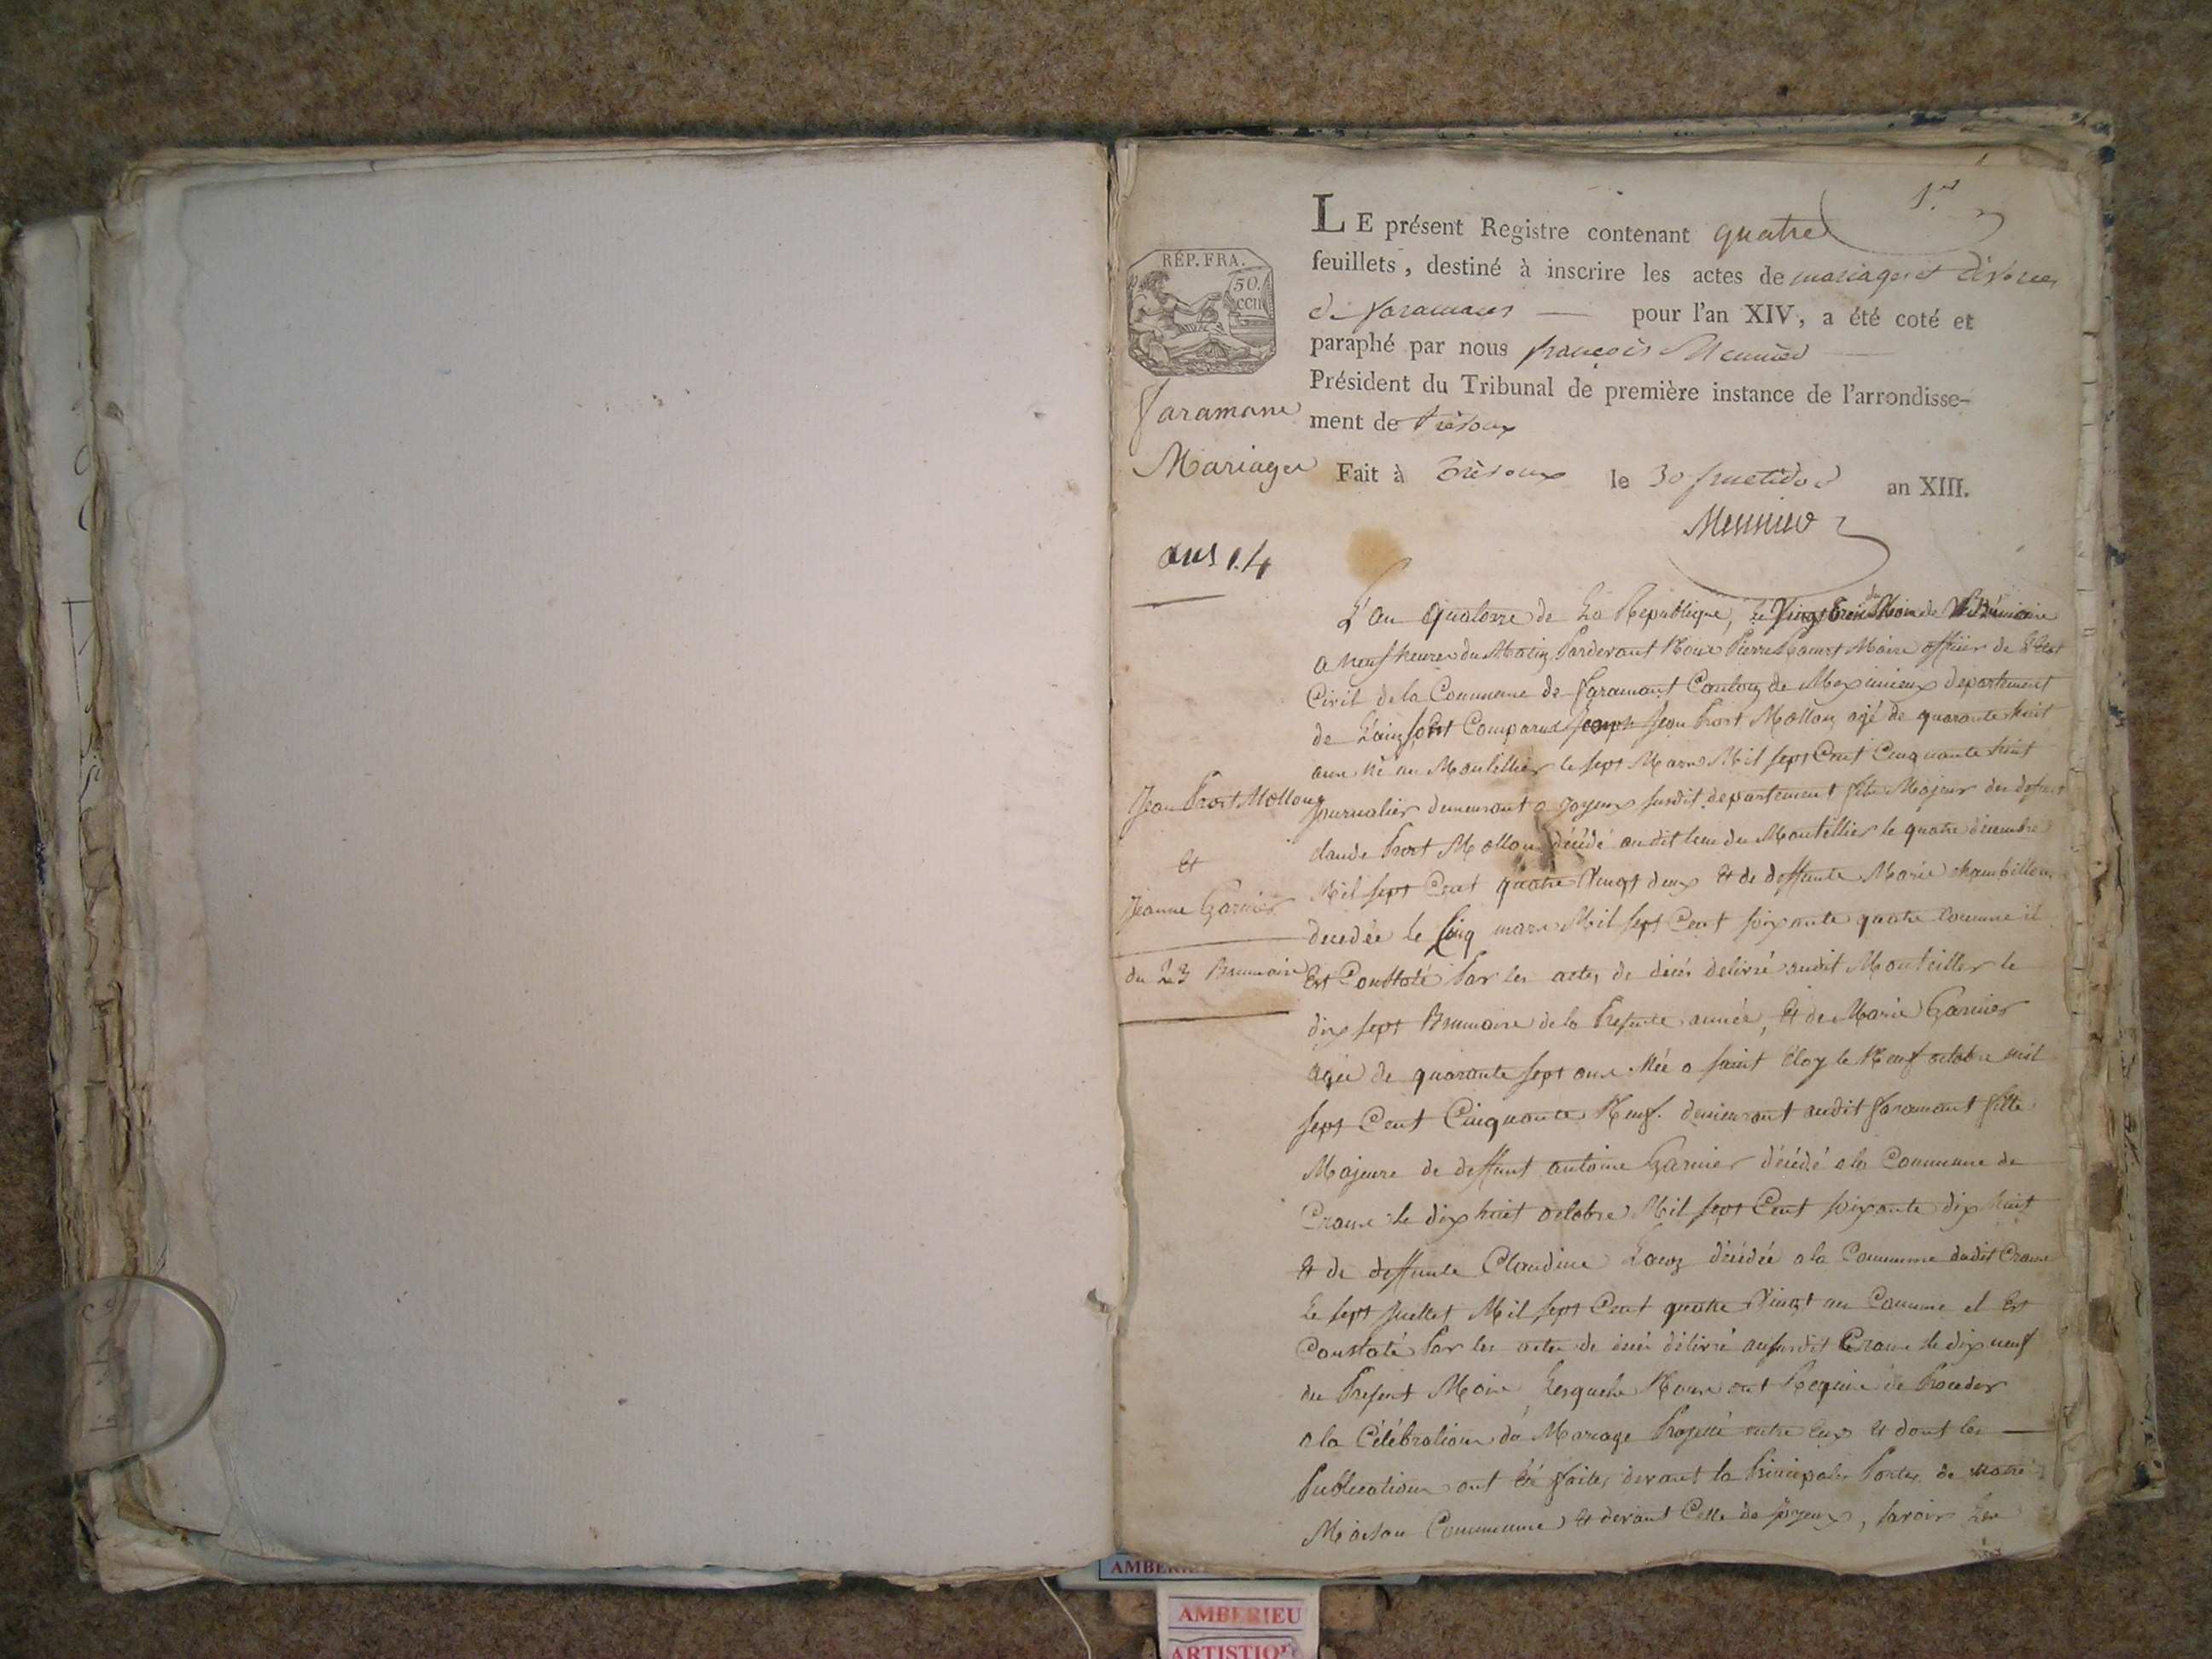 1.er
LE présent Registre contenant quatre
feuillets, destiné à inscrire les actes de mariages et divorces
de faramans — pour l'an XIV, a été coté et
paraphé par nous françois Meunier —
Président du Tribunal de première instance de l'arrondisse-
ment de Trévoux
Fait à Trévoux le 30 fructidor an XIII.
Meunier
RÉP. FRA.
50.
CEN
faramans
Mariages
ans 14
L'an Quatorze de La République, le Vingt trois du Mois de Brumaire
a neuf heures du Matin Pardevant Nous Pierre Maire officier de L'Etat
Civil de la Commune de faramant Canton de Meximieux département
de L'ain sont Comparus Jean Prost Mollon agé de quarante huit
ans né au Montellier le sept Mars Mil sept Cent Cinquante huit
Journalier demeurant a joyeux susdit departement fils Majeur de deffunt
claude Prost Mollon décédé audit lieu du Montellier le quatre décembre
Mil sept Cent quatre Vingt deux Et de deffunte Marie
decedée le Cinq mars Mil sept Cent soixante quatre Comme il
Est Constaté Par les actes de décès delivré audit Montellier le
dix sept Brumaire de la Presente année, Et de Marie Garnier
agée de quarante sept ans Née a saint Eloy le Neuf octobre mil
sept Cent Cinquante Neuf. demeurant audit faramant fille
Majeure de deffunt antoine Garnier décédé a la Commune de
Crans le dix huit octobre Mil sept Cent soixante dix huit
Et de deffunte Claudine décédée a la Commune dudit Crans
Le sept Juillet Mil sept Cent quatre Vingt un Comme il Est
Constaté Par les actes de décès délivré aususdit Crans le dix neuf
du Présent Mois, Lesquels Nous ont Requis de Proceder
a la Célébration du Mariage Projetté entre Eux Et dont les —
Publications ont Eté faites devant la Principale Portes de notre
Maison Commune Et devant Celle de joyeux, savoir Les
Jean Prost Mollon
Et
Jeanne Garnier
du 23 Brumaire
AMBERIEU
ARTISTIQ